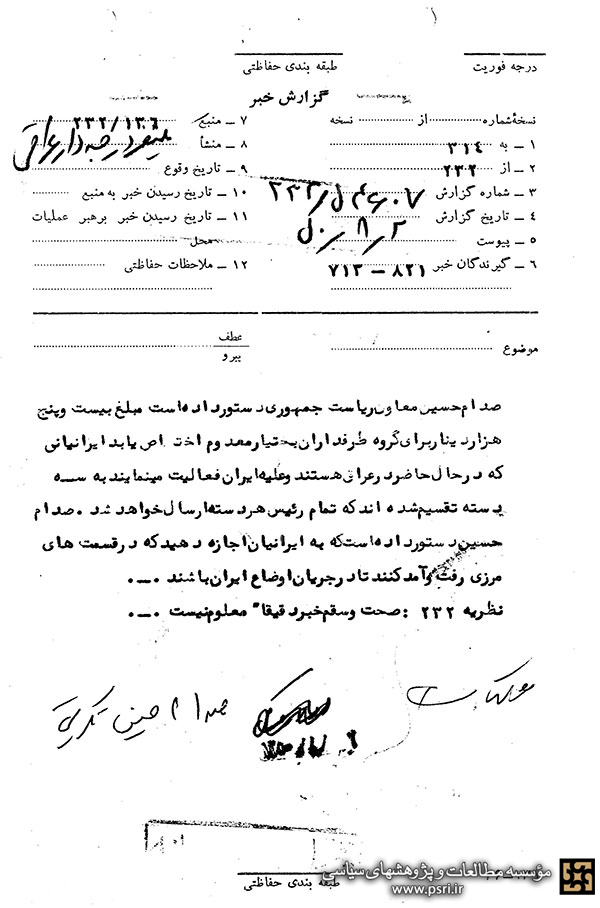 درجه فوریت
طبقه بندی حفاظتی
گزارش خبر
نسخهٔ شماره از نسخه
۱ ـ به ۳۱٤
۲ ـ از ۲۳۲
۳ ـ شماره گزارش
٤ ـ تاریخ گزارش ۵۰/۸/۲
۵ ـ پیوست
۶ ـ گیرندگان خبر ۸۲۱ ـ ۷۱۳
۷ ـ منبع ۲۳۲/۱۳۰۶
۸ ـ منشأ
۹ ـ تاریخ وقوع
۱۰ ـ تاریخ رسیدن خبر به منبع
۱۱ ـ تاریخ رسیدن خبر برهبر عملیات
محل
۱۲ ـ ملاحظات حفاظتی
موضوع
عطف
پیرو
صدام حسین معاون ریاست جمهوری دستور داده است مبلغ بیست و پنج
هزار دینار برای گروه طرفداران بختیار معدوم اختصاص یابد ایرانیانی
که در حال حاضر در عراق هستند و علیه ایران فعالیت مینمایند به سه
دسته تقسیم شده اند که تمام رئیس هر دسته ارسال خواهد شد . صدام
حسین دستور داده است که به ایرانیان اجازه دهید که در قسمت های
مرزی رفت و آمد کنند تا در جریان اوضاع ایران باشند ۰ـ۰
نظریه ۲۳۲ : صحت وسقم خبر دقیقا" معلوم نیست ۰ـ۰
صدام حسین تکریتی
طبقه بندی حفاظتی
مؤسسه مطالعات و پژوهشهای سیاسی
www.psri.ir